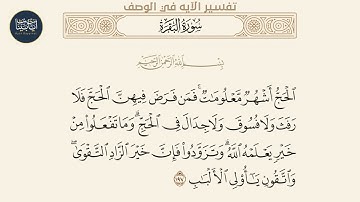 تفسير الآيه في الوصف
سُورَةُ البَقَرَةِ
بِسْمِ اللَّهِ الرَّحْمَٰنِ الرَّحِيمِ
الْحَجُّ أَشْهُرٌ مَّعْلُومَاتٌ ۚ فَمَن فَرَضَ فِيهِنَّ الْحَجَّ فَلَا
رَفَثَ وَلَا فُسُوقَ وَلَا جِدَالَ فِي الْحَجِّ ۗ وَمَا تَفْعَلُوا مِنْ
خَيْرٍ يَعْلَمْهُ اللَّهُ ۗ وَتَزَوَّدُوا فَإِنَّ خَيْرَ الزَّادِ التَّقْوَىٰ ۚ
وَاتَّقُونِ يَا أُولِي الْأَلْبَابِ ١٩٧